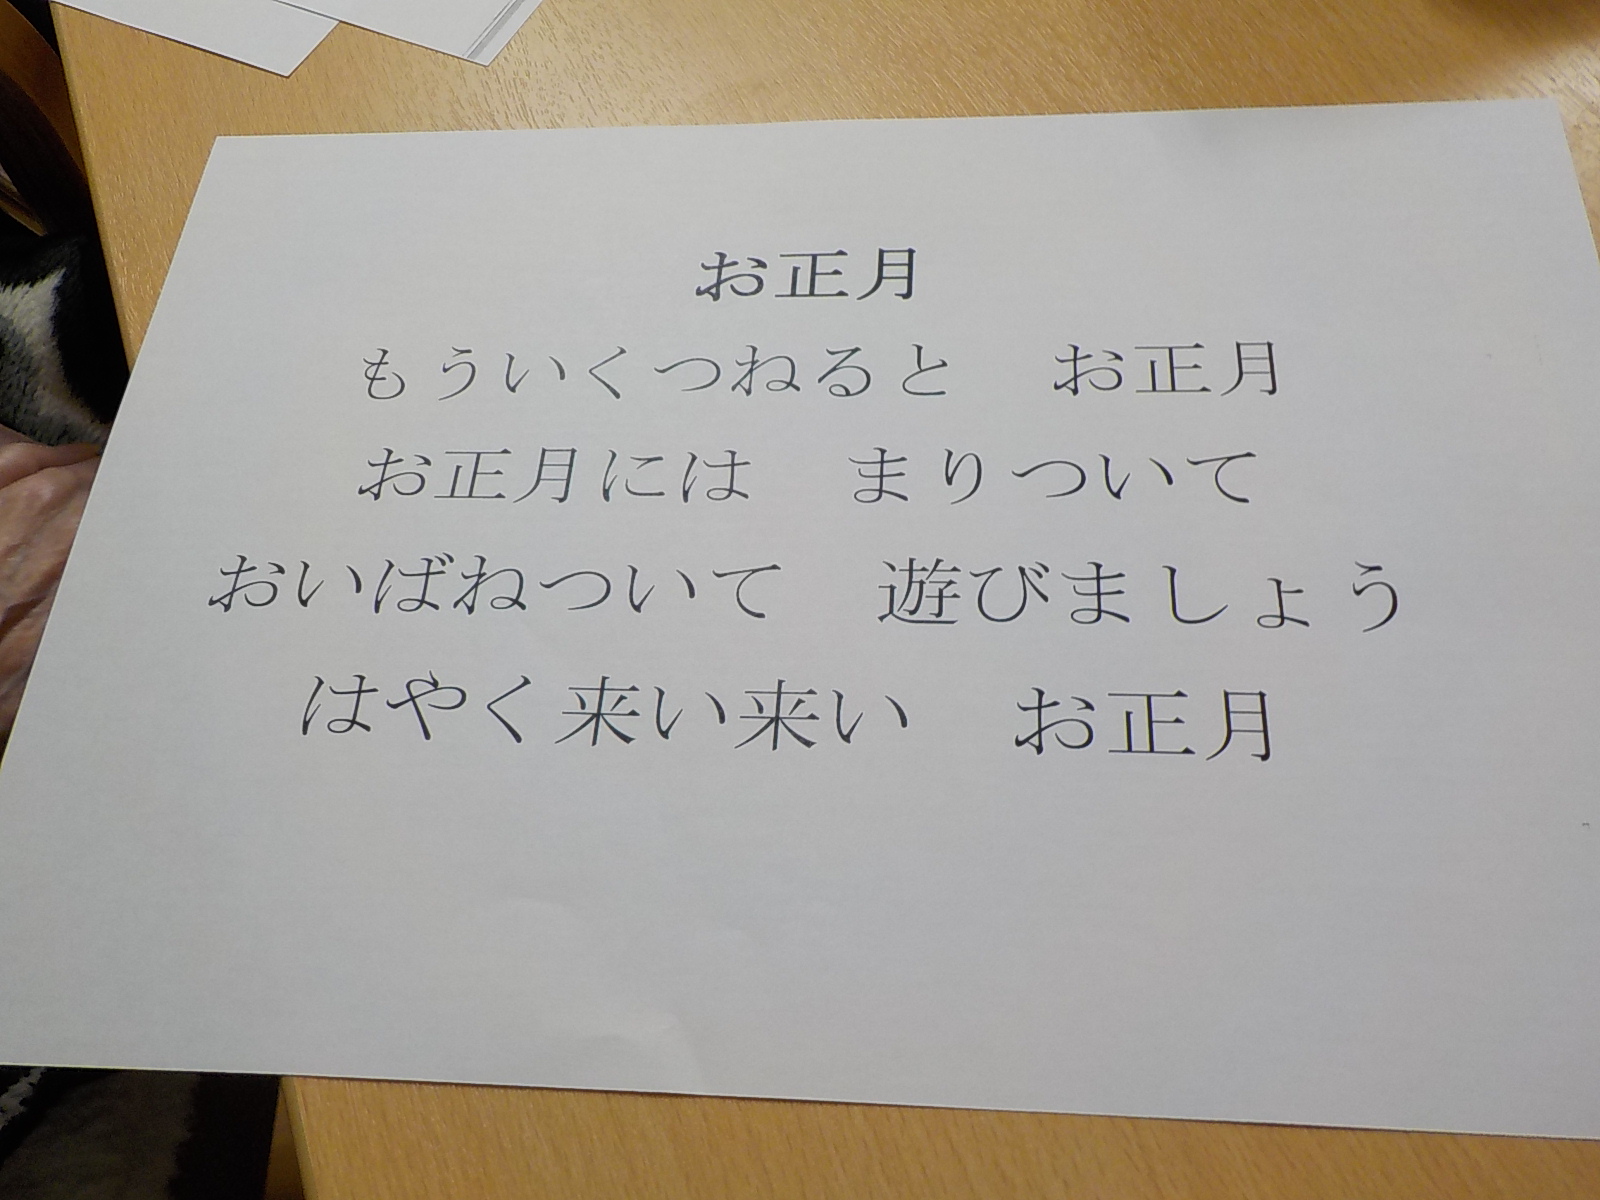 お正月
もういくつねると　お正月
お正月には　まりついて
おいばねついて　遊びましょう
はやく来い来い　お正月